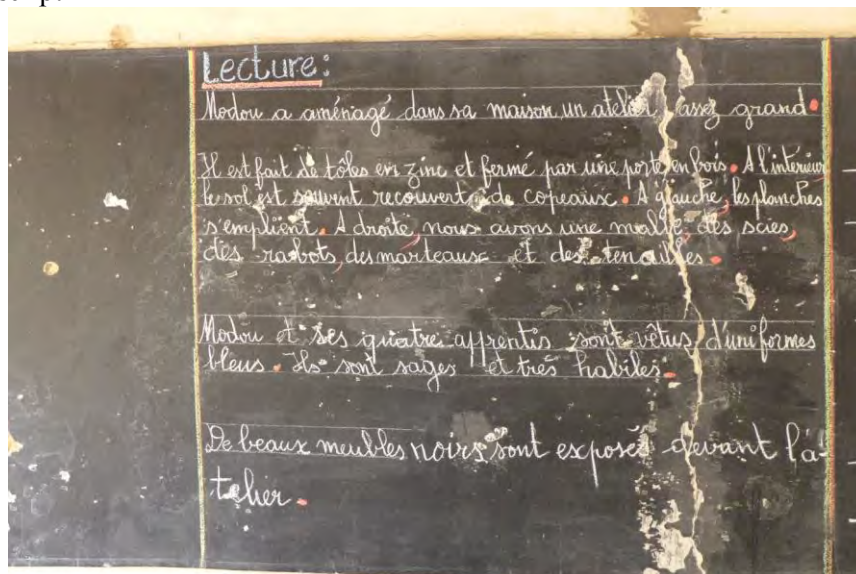 Lecture:
Modou a aménagé dans sa maison, un atelier assez grand.
Il est fait de tôles en zinc et fermé par une porte en bois. A l'intérieur
le sol est souvent recouvert de copeaux. A gauche, les planches
s'emplient. A droite, nous avons une malle, des scies,
des rabots, des marteaux et des tenailles.
Modou et ses quatre apprentis sont vêtus d'uniformes
bleus. Ils sont sages et très habiles.
De beaux meubles noirs sont exposés devant l'a-
telier.